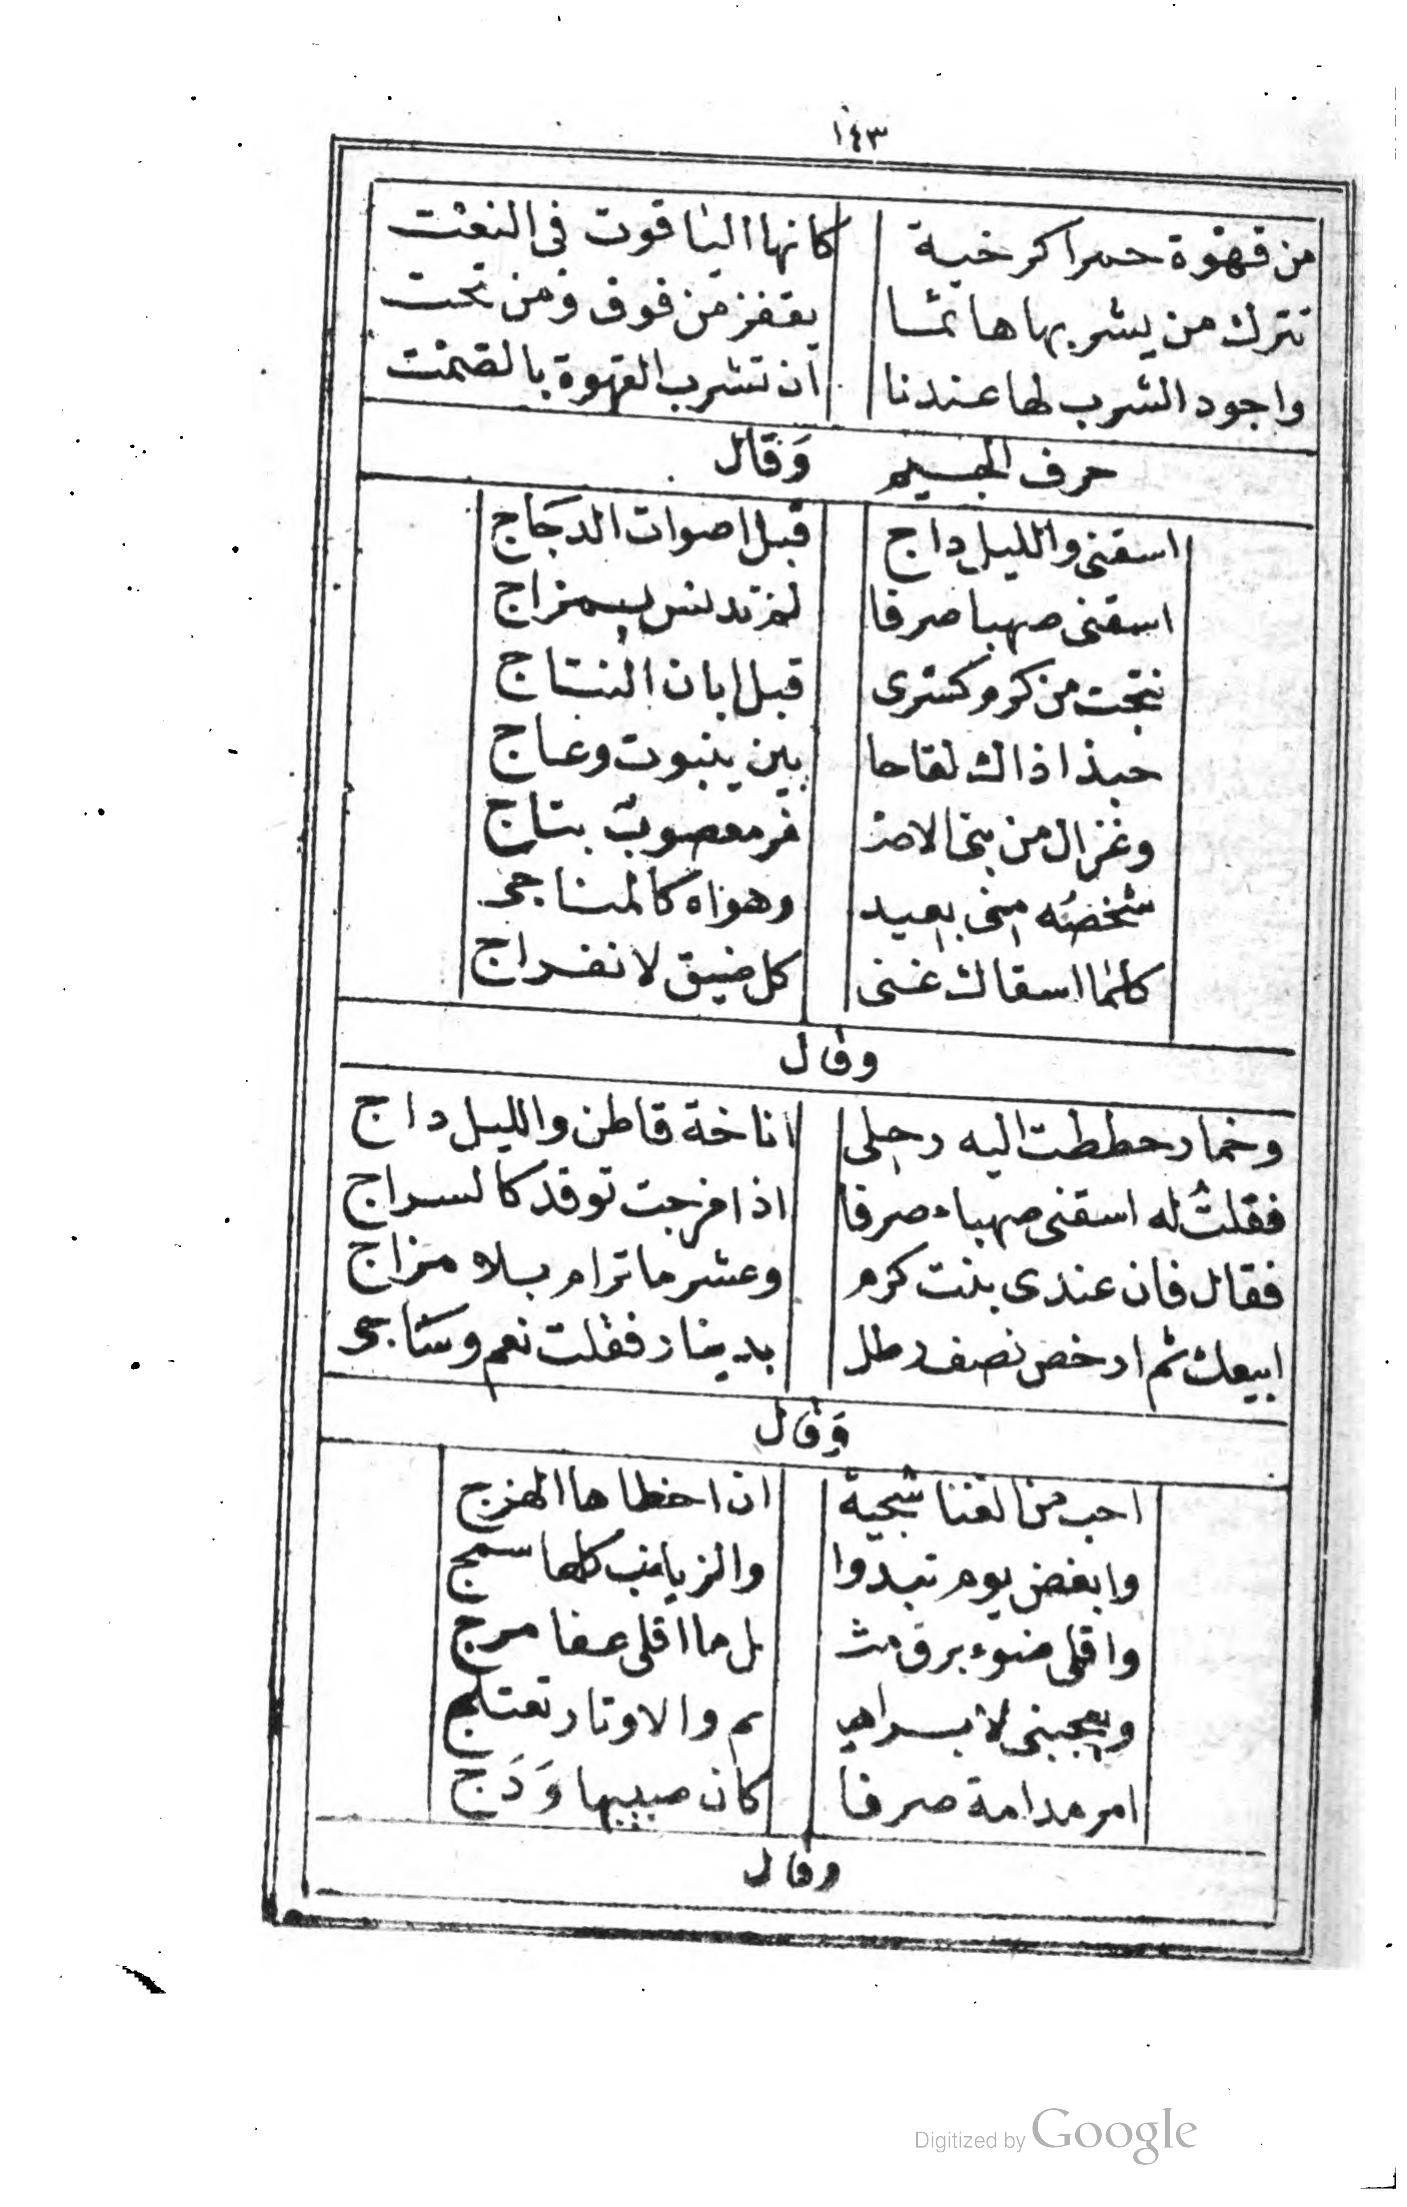 ١٤٣
من قهوة حمرا كرخية كانها الياقوت فى النعت
تترك من يشربها هائما يقفز من فوق ومن تحت
واجود الشرب لها عندنا ان تشرب القهوة بالصمت
حرف الجيم وَقال
اسقنى والليل داج قبل اصوات الدجَاج
اسقنى صهبا صرفا لم تدنس بمزاج
نتجت من كرم كسرى قبل ابان النتاج
حبذا ذاك لقاحا بين ينبوت وعاج
وغزال من بنى الاصف فر معصوب بتاج
شخصُه منى بعيد وهواه كالمناجى
كلما اسقاك غنى كل ضيق لانفراج
وقال
وخمار حططت اليه رحلى اناخة قاطن والليل داج
فقلتُ له اسقنى صهباء صرفا اذا مزجت توقد كالسراج
فقال فان عندى بنت كرم وعشر ما ترام بلا مزاج
ابيعك ثم ارخص نصف رطل بدينار فقلت نعم وساجى
وَقال
احب من الغنا شجية ان اخطاها الهزج
وابغض يوم تبدوا والزيانب كلها سمج
واقلى ضوء برق مث ل ما اقلى عفا مرج
ويعجبنى لابراهي م والاوتار تعتلج
امر مدامة صرفا كان صبيبها وَدَج
وقال
Digitized by Google